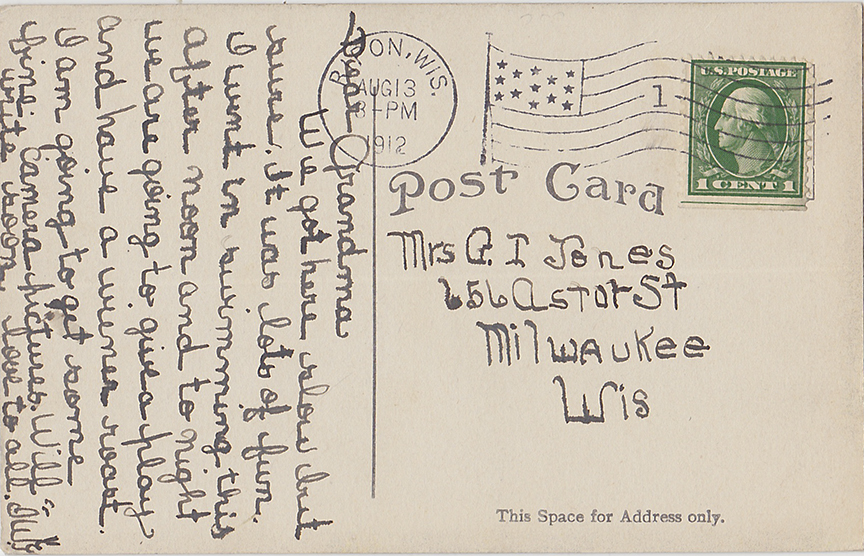 Dear Grandma
We got here slow but
sure. It was lots of fun.
I went in swimming this
after noon and to night
we are going to give a play
and have a wiener roast.
I am going to get some
fine camera pictures. Will
write soon. love to all.
ON, WIS.
AUG 13
3-PM
1912
1
U.S. POSTAGE
1 CENT 1
Post Card
Mrs A. I Jones
656 Astor St
Milwaukee
Wis
This Space for Address only.